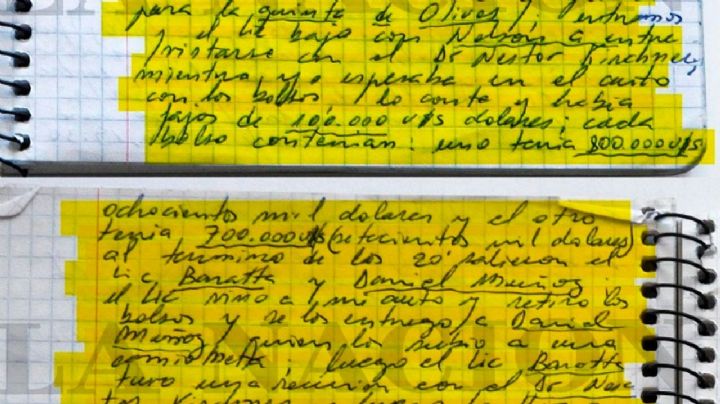 para la quinta de Olivos, entramos
y el Lic bajo con Nelson a entre
vistarse con el Dr Nestor Kirchner,
mientras yo esperaba en el auto
con los bolsos, lo conte y habia
fajos de 100.000 u$s dolares; cada
bolso contenian: uno tenia 800.000 u$s
ochocientos mil dolares y el otro
tenia 700.000 u$s (setecientos mil dolares)
al termino de los 20' salieron el
Lic Baratta y Daniel Muñoz
el Lic vino a mi auto y retiro los
bolsos y se los entrego a Daniel
Muñoz, quien los subio a una
camioneta; luego el Lic Baratta
tuvo una reunion con el Dr Nes
tor Kirchner
LA NACION